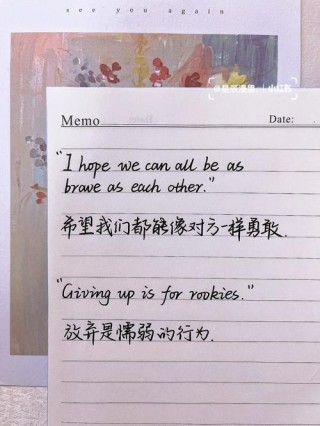 see you again
小红书
Memo
Date: .
"I hope we can all be as
brave as each other."
希望我们都能像对方一样勇敢.
"Giving up is for rookies."
放弃是懦弱的行为.